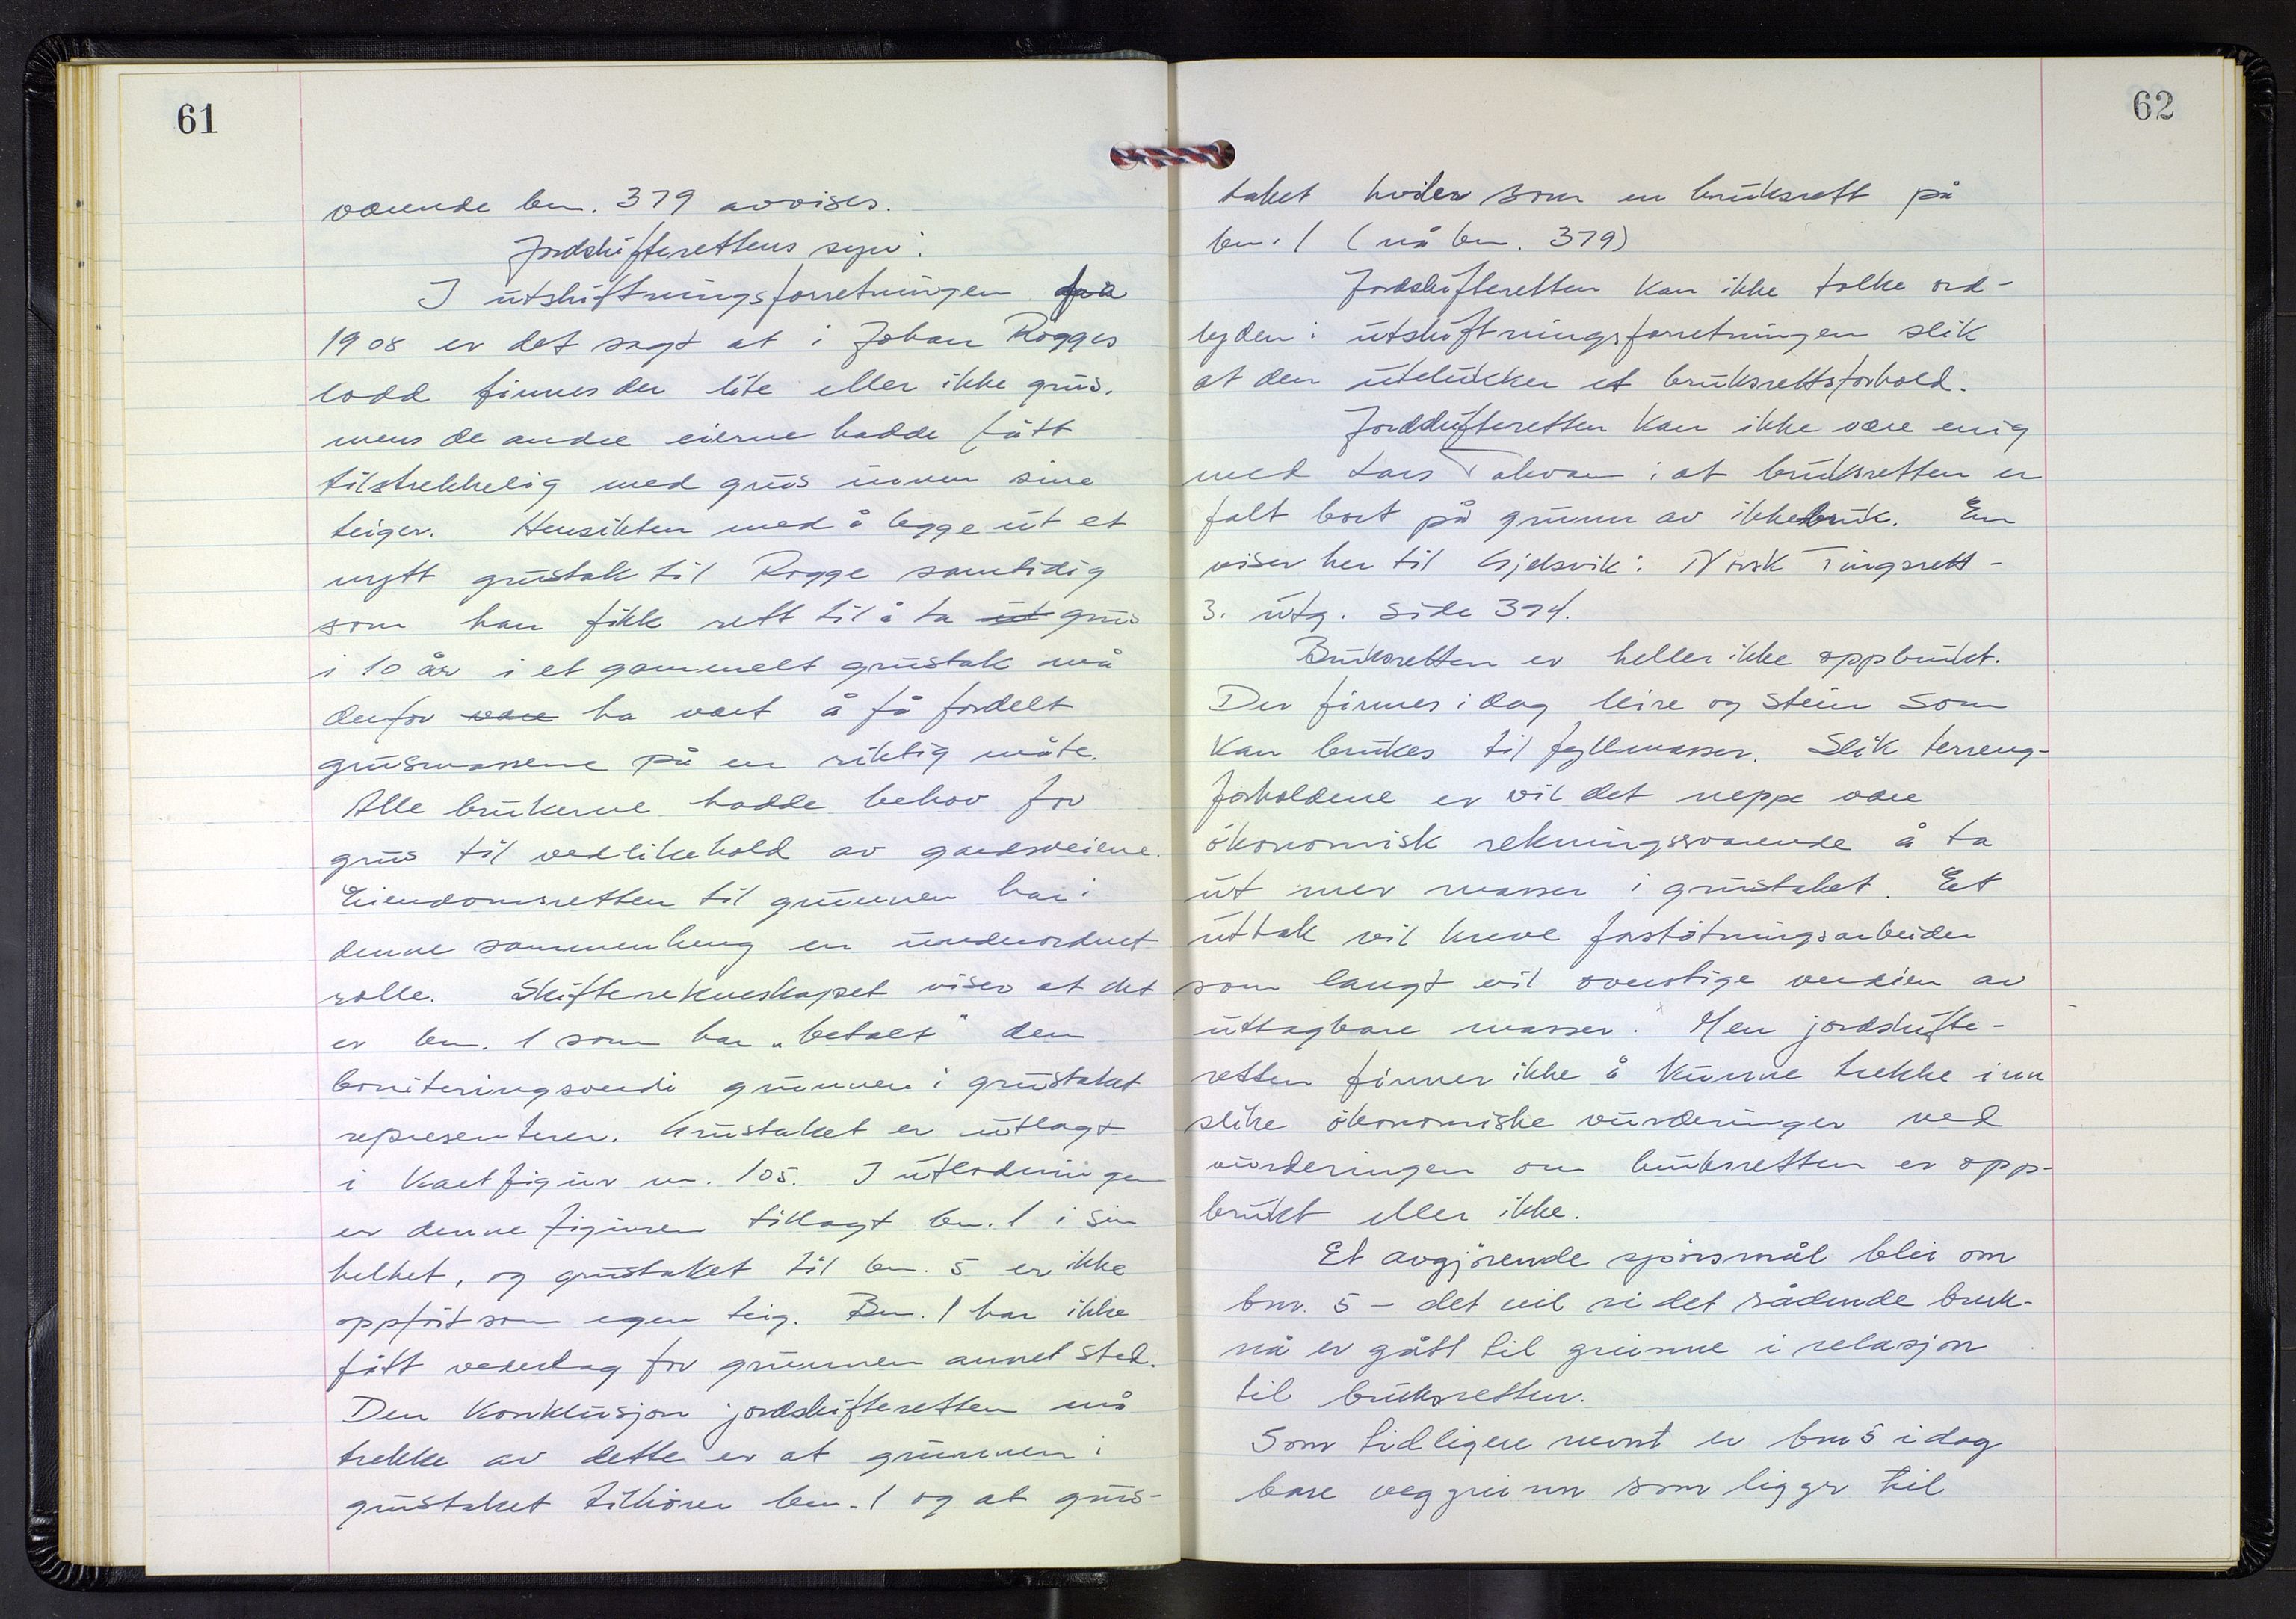 61
værende bn. 379 avvises.
Jordskifterettens syn:
I utskiftningsforretningen fra
1908 er det sagt at i Johan Rogges
lodd finnes der lite eller ikke grus,
mens de andre eierne hadde fått
tilstrekkelig med grus innen sine
teiger. Hensikten med å legge ut et
nytt grustak til Rogge samtidig
som han fikk rett til å ta ut grus
i 10 år i et gammelt grustak må
derfor være ha vært å få fordelt
grusmassene på en riktig måte.
Alle brukerne hadde behov for
grus til vedlikehold av gardsveiene.
Eiendomsretten til grunnen har i
denne sammenheng en underordnet
rolle. Skifterekneskapet viser at det
er bn. 1 som har „betalt" den
boniteringsverdi grunnen i grustaket
representerer. Grustaket er utlagt
i kartfigur nr. 105. I utlodningen
er denne figuren tillagt bn. 1 i sin
helhet, og grustaket til bn. 5 er ikke
oppført som egen teig. Bn. 1 har ikke
fått vederlag for grunnen annet sted.
Den konklusjon jordskifteretten må
trekke av dette er at grunnen i
grustaket tilhører bn. 1 og at grus-
62
taket hviler som en bruksrett på
bn. 1 (nå bn. 379)
Jordskifteretten kan ikke tolke ord-
lyden i utskiftningsforretningen slik
at den utelukker et bruksrettsforhold.
Jordskifteretten kan ikke være enig
med Lars Takvam i at bruksretten er
falt bort på grunn av ikkebruk. En
viser her til Gjelsvik: Norsk Tingsrett -
3. utg. side 394.
Bruksretten er heller ikke oppbrukt.
Der finnes i dag leire og stein som
kan brukes til fyllmasser. Slik terreng-
forholdene er vil det neppe være
økonomisk rekningssvarende å ta
ut mer masser i grustaket. Et
uttak vil kreve forstøtningsarbeider
som langt vil overstige verdien av
uttagbare masser. Men jordskifte-
retten finner ikke å kunne trekke inn
slike økonomiske vurderinger ved
vurderingen om bruksretten er opp-
brukt eller ikke.
Et avgjørende spørsmål blir om
bnr. 5 - det vil si det rådende bruk -
nå er gått til grunne i relasjon
til bruksretten.
Som tidligere nevnt er bnr 5 i dag
bare veggrunn som ligger til